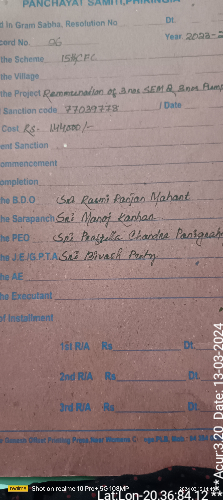 PANCHAYAT SAMITI, PHIRINGIA
d in Gram Sabha, Resolution No Dt.
cord No. 06 Year 2023-2
the Scheme 15th CFC
the Village
the Project of 3 nos SEM & 3 nos Pump
Sanction code 77039778 / Date
Cost Rs. 144000/-
ent Sanction
ommencement
ompletion
the B.D.O Sri Rasmi Ranjan Mahant
the Sarapanch Sri Manoj Kanhan
the PEO Sri Chandra
the J.E./G.P.T.A. Sri Bivash
the AE
the Executant
of Installment
1st R/A Rs Dt.
2nd R/A Rs Dt.
3rd R/A Rs Dt.
Offset Printing
realme Shot on realme 10 Pro+ 5G 108MP
Lat:Lon-20.36:84.17
Acur:3.20 Date: 13-03-2024